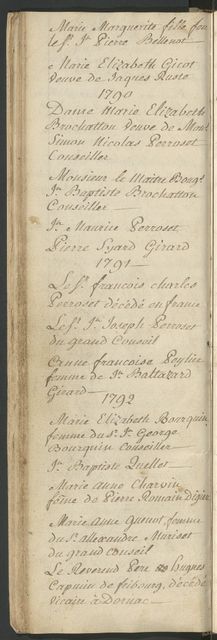 Marie Marguerite fille feu
le Sr. Jn. Pierre Bellenot
Marie Elizabeth Gicot
veuve de Jaques Ruste
1790
Dame Marie Elizabeth
Brochatton veuve de Monsr.
Simon Nicolas Perroset
Conseiller
Monsieur le Maitre Bourgs.
Jn. Baptiste Brochatton
Conseiller
Jn. Maurice Perroset
Pierre Girard
1791
Le Sr. francois charles
Perroset décédé en france
Le Sr. Jn. Joseph Perroset
du grand Conseil
Anne francoise
femme de Jn. Baltazard
Girard
1792
Marie Elizabeth Bourquin
femme du Sr. Jn. George
Bourquin Conseiller
Jn. Baptiste Quellet
Marie Anne Charvin
feme de Pierre Romain
Marie Anne femme
du Sr. allexandre Muriset
du grand conseil
Le Reverend Pere hugues
Capucin de fribourg, décédé
vicaire à Dornac